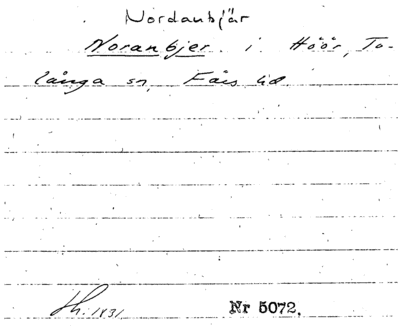 Nordanbjär
Noranbjer i Höör, To-
långa sn, Färs hd.
Th. 1931. Nr 5072.